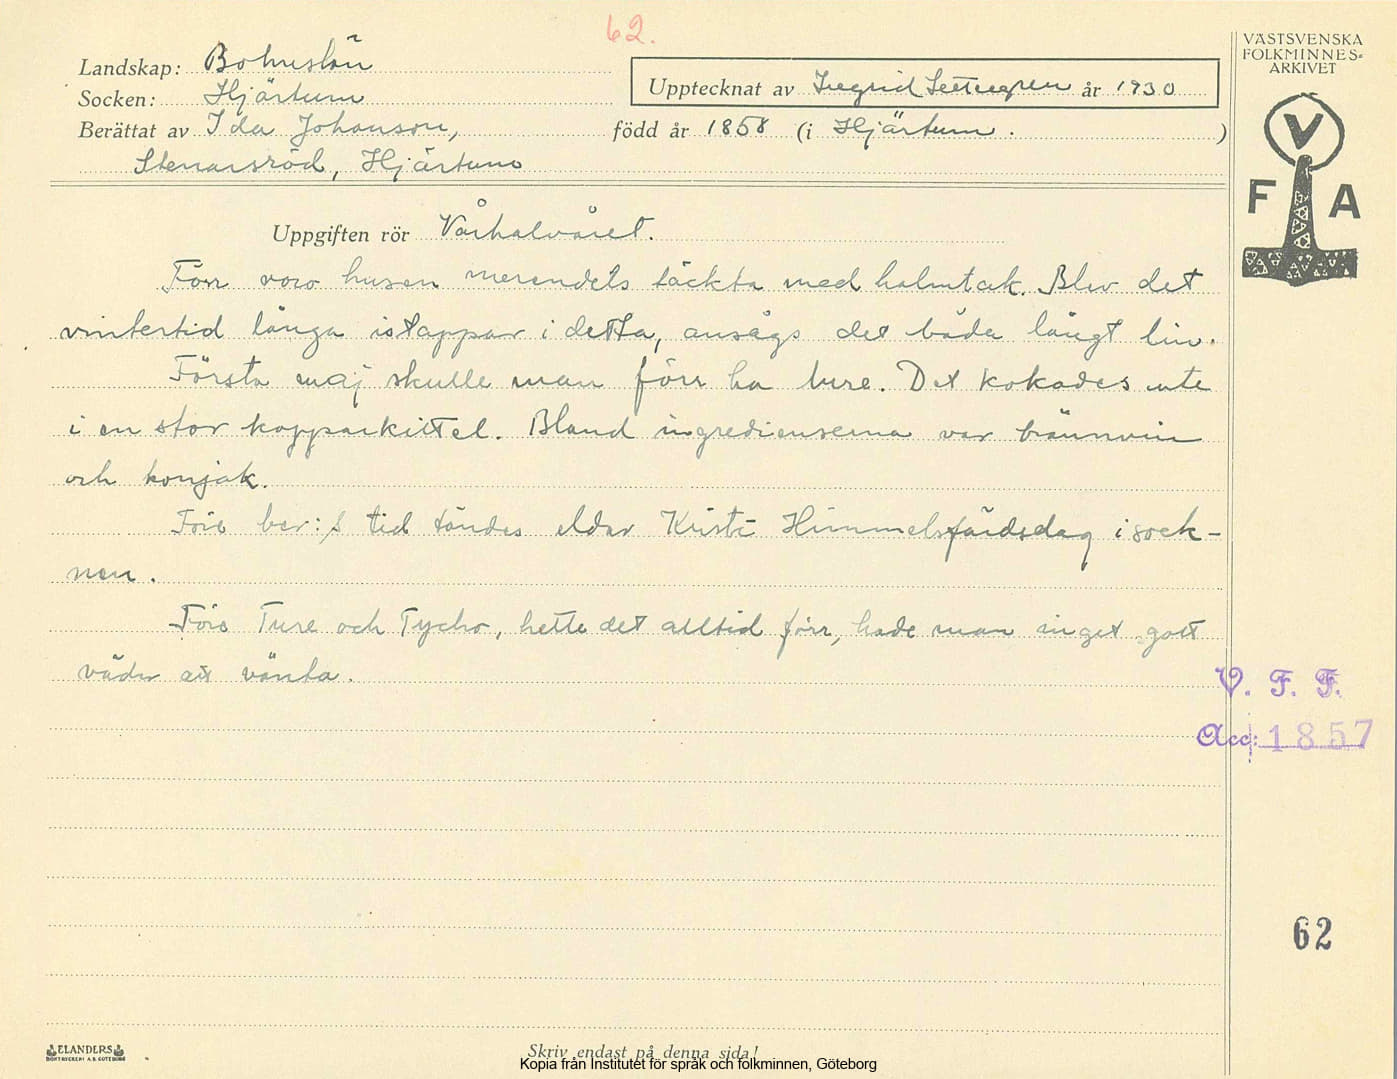 62.
VÄSTSVENSKA
FOLKMINNES=
ARKIVET
V
F A
Landskap: Bohuslän
Socken: Hjärtum
Upptecknat av Ingrid år 1930
Berättat av Ida Johanson, född år 1858 (i Hjärtum. )
Stenarsröd, Hjärtum
Uppgiften rör Vårhalvåret.
Förr voro husen merendels täckta med halmtak. Blev det
vintertid långa istappar i detta, ansågs det båda långt lin.
Första maj skulle man förr ha bure. Det kokades ute
i en stor kopparkittel. Bland ingredienserna var brännvin
och konjak.
Före ber:s tid tändes eldar Kristi Himmelsfärdsdag i sock-
nen.
Före Ture och Tycho, hette det alltid förr, hade man inget gott
väder att vänta.
V. F. F.
Acc: 1857
62
ELANDERS
BOKTRYCKERI A.B. GÖTEBORG
Skriv endast på denna sida!
Kopia från Institutet för språk och folkminnen, Göteborg